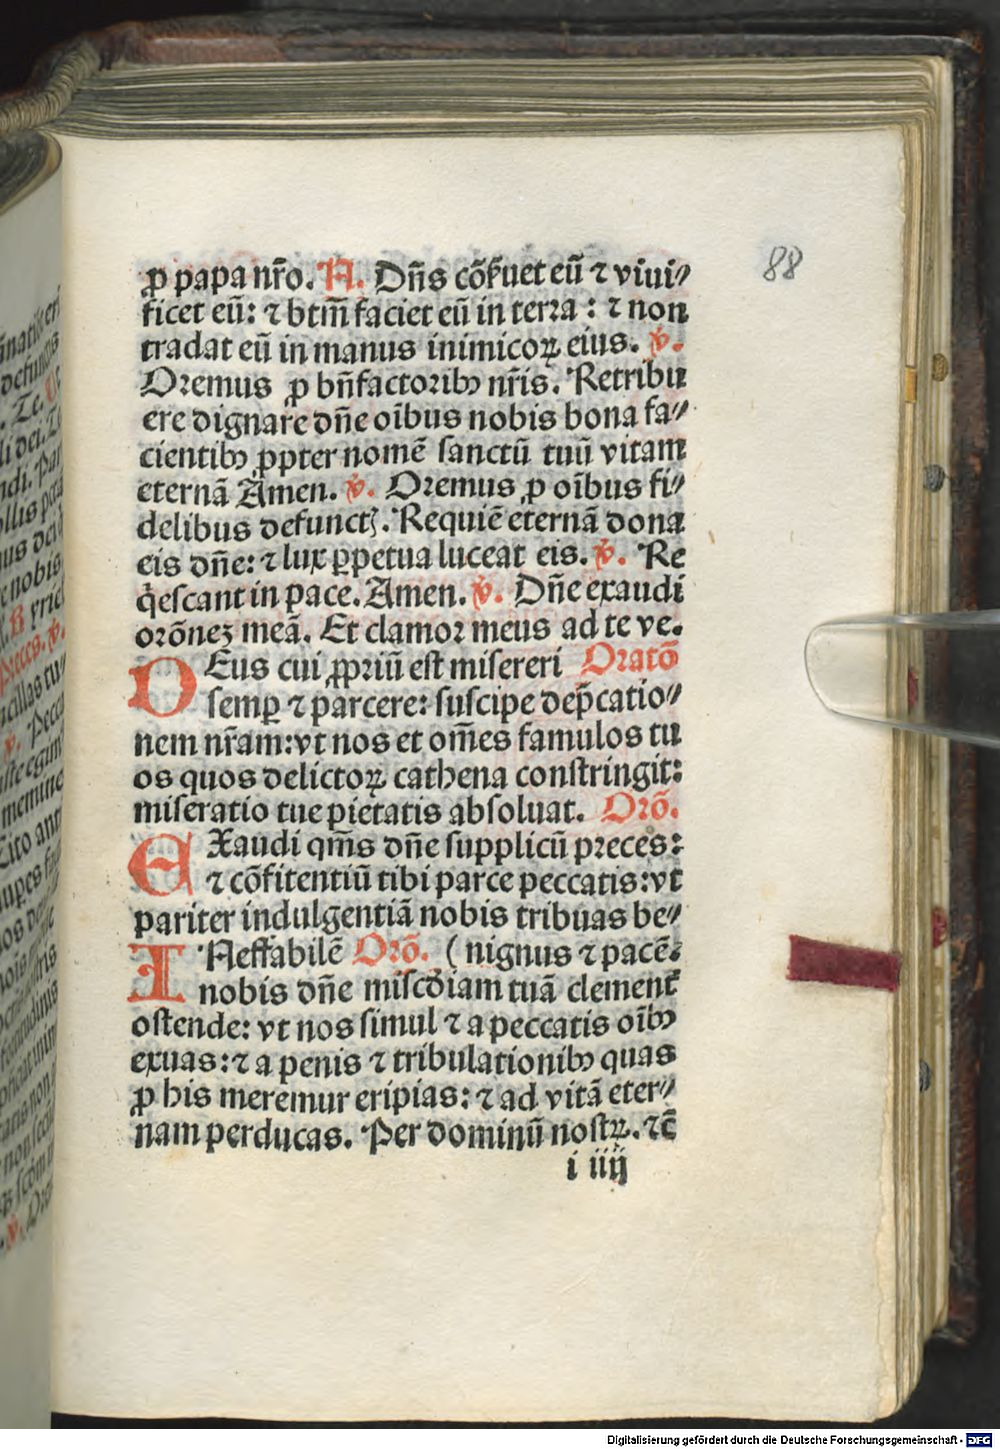 88
ꝓ papa nr̃o. A. Dñs cõẜuet eũ ⁊ viui⸗
ficet eũ: ⁊ btm̃ faciet eũ in terra : ⁊ non
tradat eũ in manus inimicoꝝ eius. v̾.
Oremus ꝓ bñfactoribꝰ nr̃is. Retribu
ere dignare dñe oĩbus nobis bona fa⸗
cientibꝰ ꝓpter nomẽ sanctũ tuũ vitam
eternã Amen. v̾. Oremus ꝓ oĩbus fi⸗
delibus defunctꝭ. Requiẽ eternã dona
eis dñe: ⁊ lux ꝑpetua luceat eis. v̾. Re
q̃escant in pace. Amen. v̾. Dñe exaudi
orõneꝫ meã. Et clamor meus ad te ve.
DEus cui ꝓpriũ est misereri Oratõ
semꝑ ⁊ parcere: suscipe dep̃catio⸗
nem nr̃am: vt nos et om̃es famulos tu
os quos delictoꝝ cathena constringit:
miseratio tue pietatis absoluat. Orõ.
EXaudi qm̃s dñe supplicũ preces:
⁊ cõfitentiũ tibi parce peccatis: vt
pariter indulgentiã nobis tribuas be⸗
INeffabilẽ Orõ. ( nignus ⁊ pacẽ:
nobis dñe mis̃cd̃iam tuã clement̃
ostende: vt nos simul ⁊ a peccatis oĩbꝰ
exuas: ⁊ a penis ⁊ tribulationibꝰ quas
ꝓ his meremur eripias: ⁊ ad vitã eter⸗
nam perducas. Per dominũ nostꝝ. ⁊c̃
i iiij
Digitalisierung gefördert durch die Deutsche Forschungsgemeinschaft - DFG